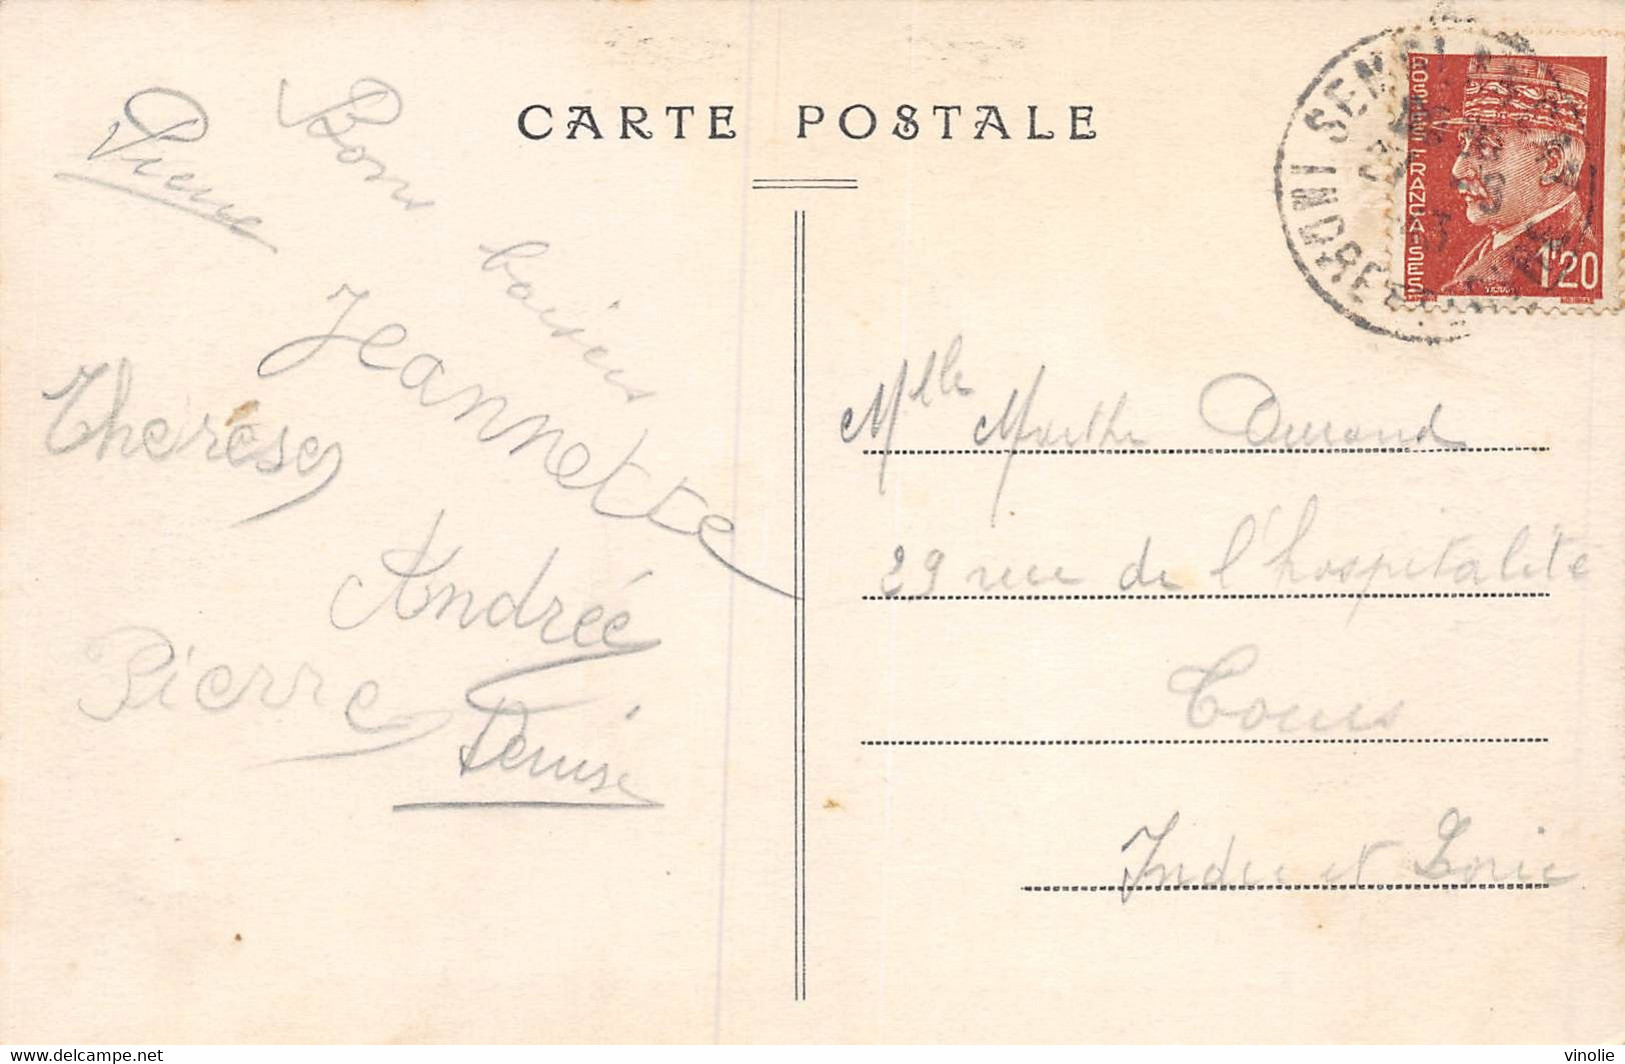 CARTE POSTALE
Bons baisers
Pierre
Jeannette
Therèse
Andrée
Pierre
Denise
POSTES FRANÇAISES
1F20
INDRE ET
Mlle Marthe Durand
29 rue de l'hospitalité
Tours
Indre et Loire
delcampe.net
vinolie